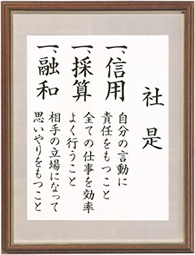 社是
一、信用
自分の言動に
責任をもつこと
一、採算
全ての仕事を効率
よく行うこと
一、融和
相手の立場になって
思いやりをもつこと